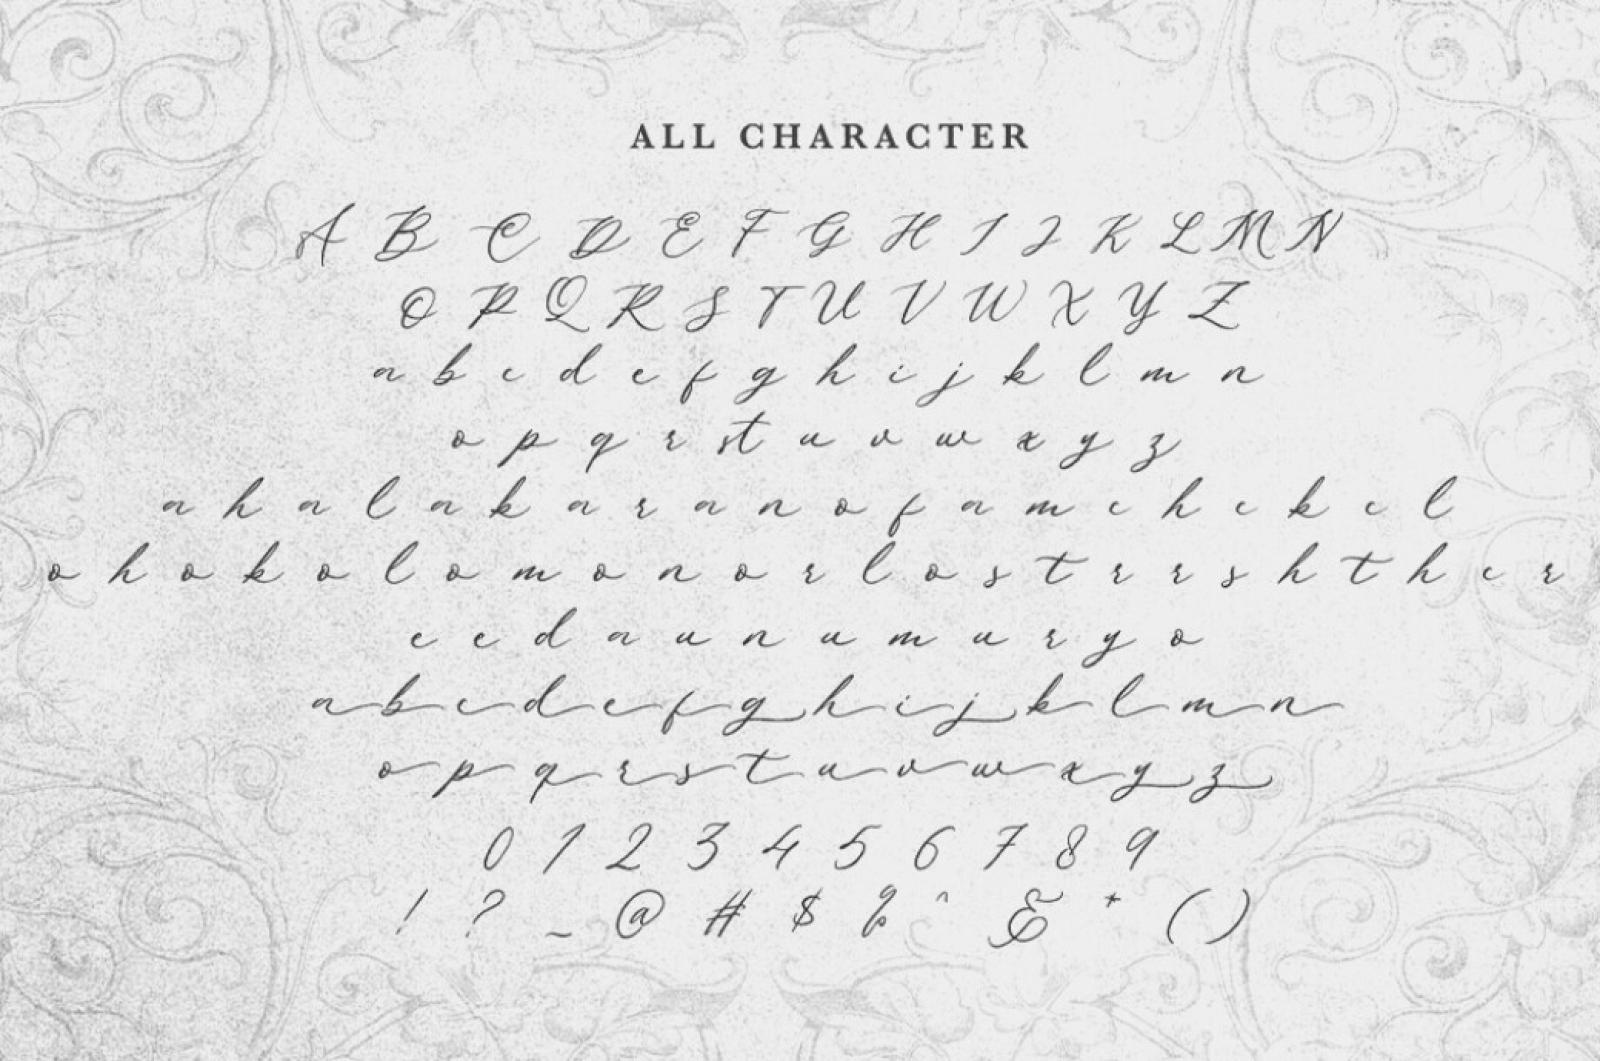 ALL CHARACTER
A B C D E F G H I J K L M N
O P Q R S T U V W X Y Z
a b c d e f g h i j k l m n
o p q r s t u v w x y z
a h a l a k a r a n o f a m c h c k c l
o h o k o l o m o n o r l o s t r r s h t h e r
e e d a u n u m u r y o
a b c d e f g h i j k l m n
o p q r s t u v w x y z
0 1 2 3 4 5 6 7 8 9
! ? _ @ # $ % ^ & * ( )